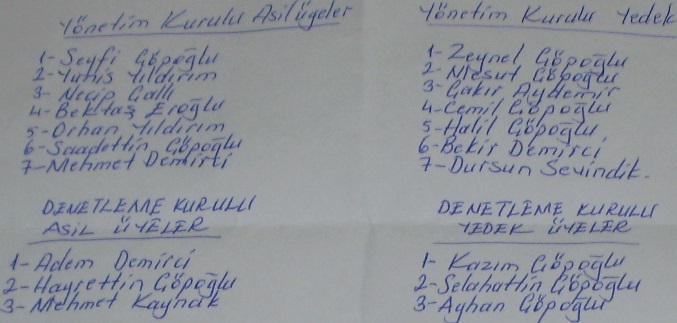 Yönetim Kurulu Asil üyeler
1- Seyfi Göpoğlu
2- Yunis Yıldırım
3- Necip Gallı
4- Bektaş Eroğlu
5- Orhan Yıldırım
6- Saadettin Göpoğlu
7- Mehmet Demirci
DENETLEME KURULU
ASİL ÜYELER
1- Adem Demirci
2- Hayrettin Göpoğlu
3- Mehmet Kaynak
Yönetim Kurulu Yedek
1- Zeynel Göpoğlu
2- Mesut Göpoğlu
3- Çakır Aydemir
4- Cemil Göpoğlu
5- Halil Göpoğlu
6- Bekir Demirci
7- Dursun Sevindik.
DENETLEME KURULU
YEDEK ÜYELER
1- Kazım Göpoğlu
2- Selahattin Göpoğlu
3- Ayhan Göpoğlu